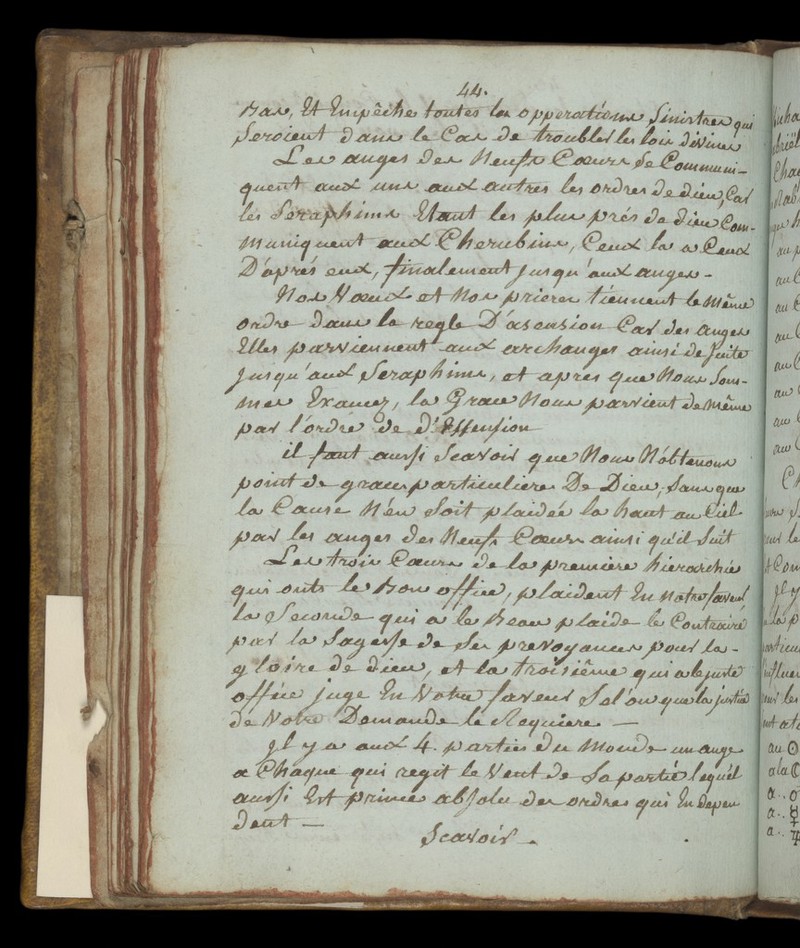 44.
Bas, Et Empêche toutes les opperations Sinistres qui
Seroient dans le Cas de troubler les loix divines
Les anges des Neufs Cœurs Se Communi-
quent aux uns aux autres les ordres de dieu, Car
les Seraphims Etant les plus prés de dieu Com-
muniquent aux Cherubins, Ceux la a Ceux
D'aprés eux, finalement jusqu'aux anges -
Nos Vœux et Nos prieres tiennent le Même
ordre dans la regle D'asension Car des anges
Elles parviennent aux archanges ainsi de Suite
jusqu'aux Seraphims, et apres que Nous Som-
mes Exaucez, la Grace Nous parvient de Même
par l'ordre de
il faut aussi Scavoir que Nous N'obtenons
point de graces particulieres De Dieu, Sans que
la Cause N'en Soit plaidée la haut au Ciel
par les anges des Neufs Cœurs ainsi qu'il Suit
Les trois Cœurs de la premiere hierarchie
qui onts le Bon office, plaident En notre faveur
la Seconde qui a le Beau plaide le Contraire
par la Sagesse de Ses prevoyances pour la -
gloire de dieu, et la troisiême qui a le juste
office juge En Votre faveur Selon que la justice
de Votre Demande le Requiere -
Il y a aux 4. parties du Monde un ange
a Chaque qui regit le Vent de Sa partie lequel
aussi Est prince absolu des ordres qui En depen
dent -
Scavoir -